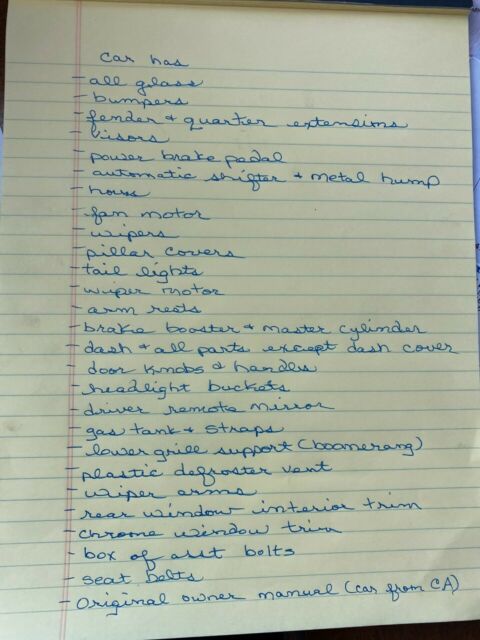 car has
- all glass
- bumpers
- fender & quarter extensions
- visors
- power brake pedal
- automatic shifter & metal hump
- horns
- fan motor
- wipers
- pillar covers
- tail lights
- wiper motor
- arm rests
- brake booster & master cylinder
- dash & all parts except dash cover
- door knobs & handles
- headlight buckets
- driver remote mirror
- gas tank & straps
- lower grill support (boomerang)
- plastic defroster vent
- wiper arms
- rear window interior trim
- chrome window trim
- box of asst bolts
- seat belts
- original owner manual (car from CA)